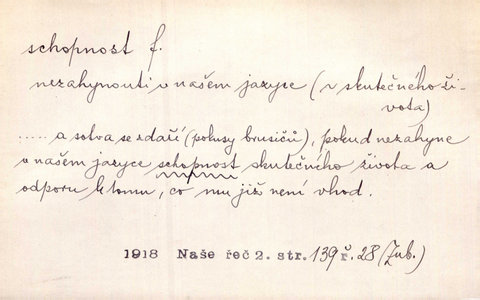 schopnost f.
nezahynouti v našem jazyce (v skutečného ži-
vota)
..... a sotva se zdaří (pokusy brusičů), pokud nezahyne
v našem jazyce schopnost skutečného života a
odporu k tomu, co mu již není vhod.
1918 Naše řeč 2. str. 139 ř. 28 (Zub.)